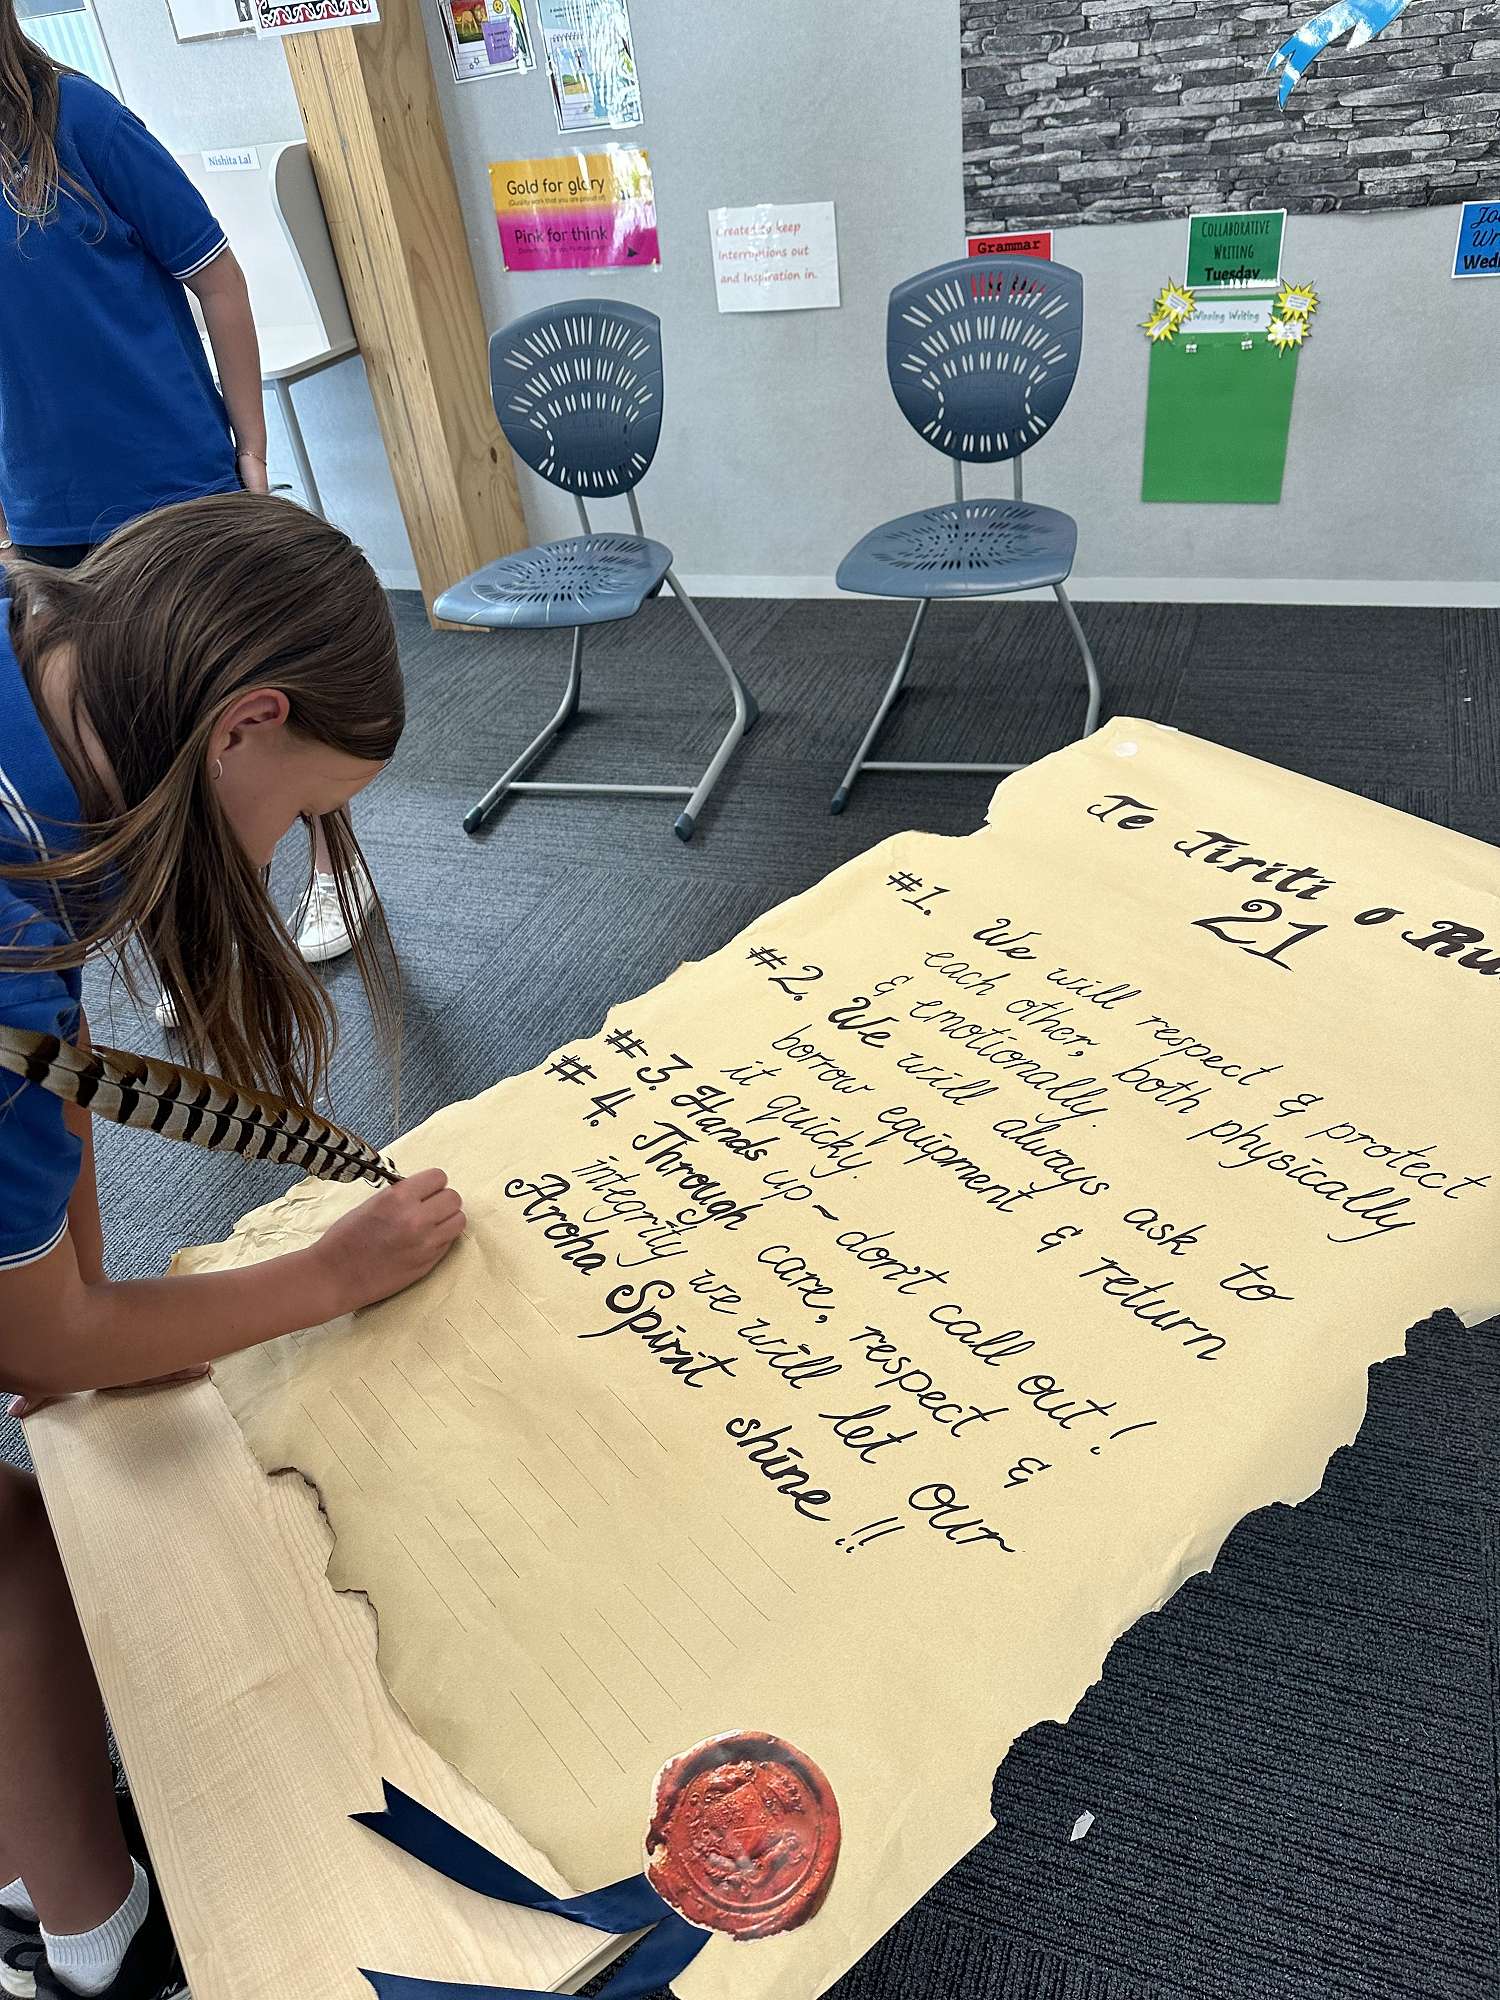 Nishita Lal
Gold for glory
(Quality work that you are proud of)
Pink for think
Created to keep
Interruptions out
and Inspiration in.
Grammar
COLLABORATIVE
WRITING
Tuesday
Winning Writing
Te Tiriti o
21
#1. We will respect & protect
each other, both physically
& emotionally.
#2. We will always ask to
borrow equipment & return
it quicky.
#3. Hands up ~ don't call out!
#4. Through care, respect &
integrity we will let our
Aroha Spirit shine!!